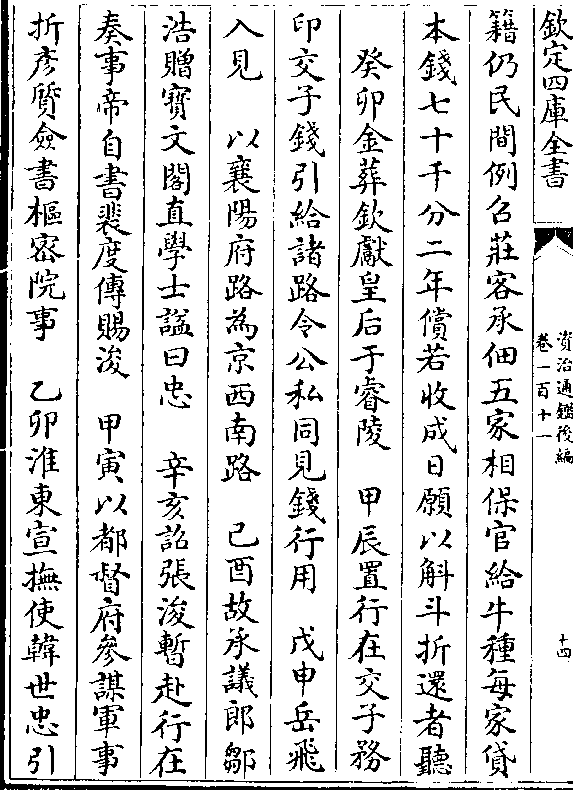 欽定四庫全書
資治通鑑後編
卷一百十一
十四
籍仍民間例召莊客承佃五家相保官給牛種每家貸
本錢七十千分二年償若收成日願以斛斗折還者聽
癸卯金葬欽獻皇后于睿陵　甲辰置行在交子務
印交子錢引給諸路令公私同見錢行用　戊申岳飛
入見　以襄陽府路為京西南路　己酉故承議郎鄒
浩贈寳文閣直學士諡曰忠　辛亥詔張浚暫赴行在
奏事帝自書裴度傳賜浚　甲寅以都督府參謀軍事
折彥質僉書樞密院事　乙卯淮東宣撫使韓世忠引